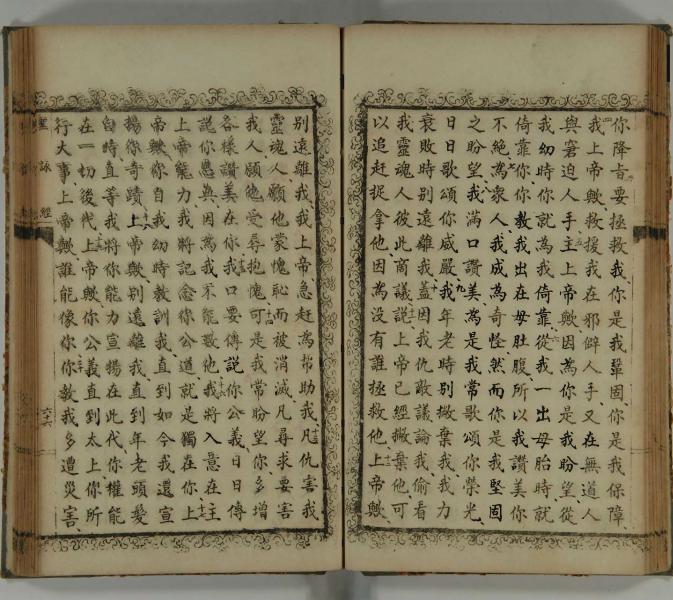 你降旨要拯救我你是我鞏固你是我保障
我上帝歟救援我在邪僻人手又在無道人
與窘迫人手主上帝歟因為你是我盼望從
我幼時你就為我倚靠從我一出母胎時就
倚靠你你教我出在母肚腹所以我讚美你
不絕為衆人我成為奇怪然而你是我堅固
之盼望我滿口讚美為是我常歌頌你榮光
日日歌頌你威嚴我年老時別撇棄我我力
衰敗時別遠離我蓋因我仇敵議論我偷看
我靈魂人彼此商議說上帝已經撇棄他可
以追赶捉拿他因為没有誰拯救他上帝歟
別遠離我我上帝急赶為幇助我凡仇害我
靈魂人願他蒙愧恥而被消滅凡尋求要害
我人願他受辱抱愧可是我常盼望你多增
各樣讚美在你我口要傳說你公義日日傳
說你恩典因為我不能數他我將入意在主
上帝能力我將記念你公道就是獨在你上
帝歟你自我幼時教訓我直到如今我還宣
揚你奇蹟上帝歟別遠離我直到年老頭髮
白時直等我將你能力宣揚在此代你權能
在一切後代上帝歟你公義直到太上你所
行大事上帝歟誰能像你你教我多遭災害
聖詠經
六六